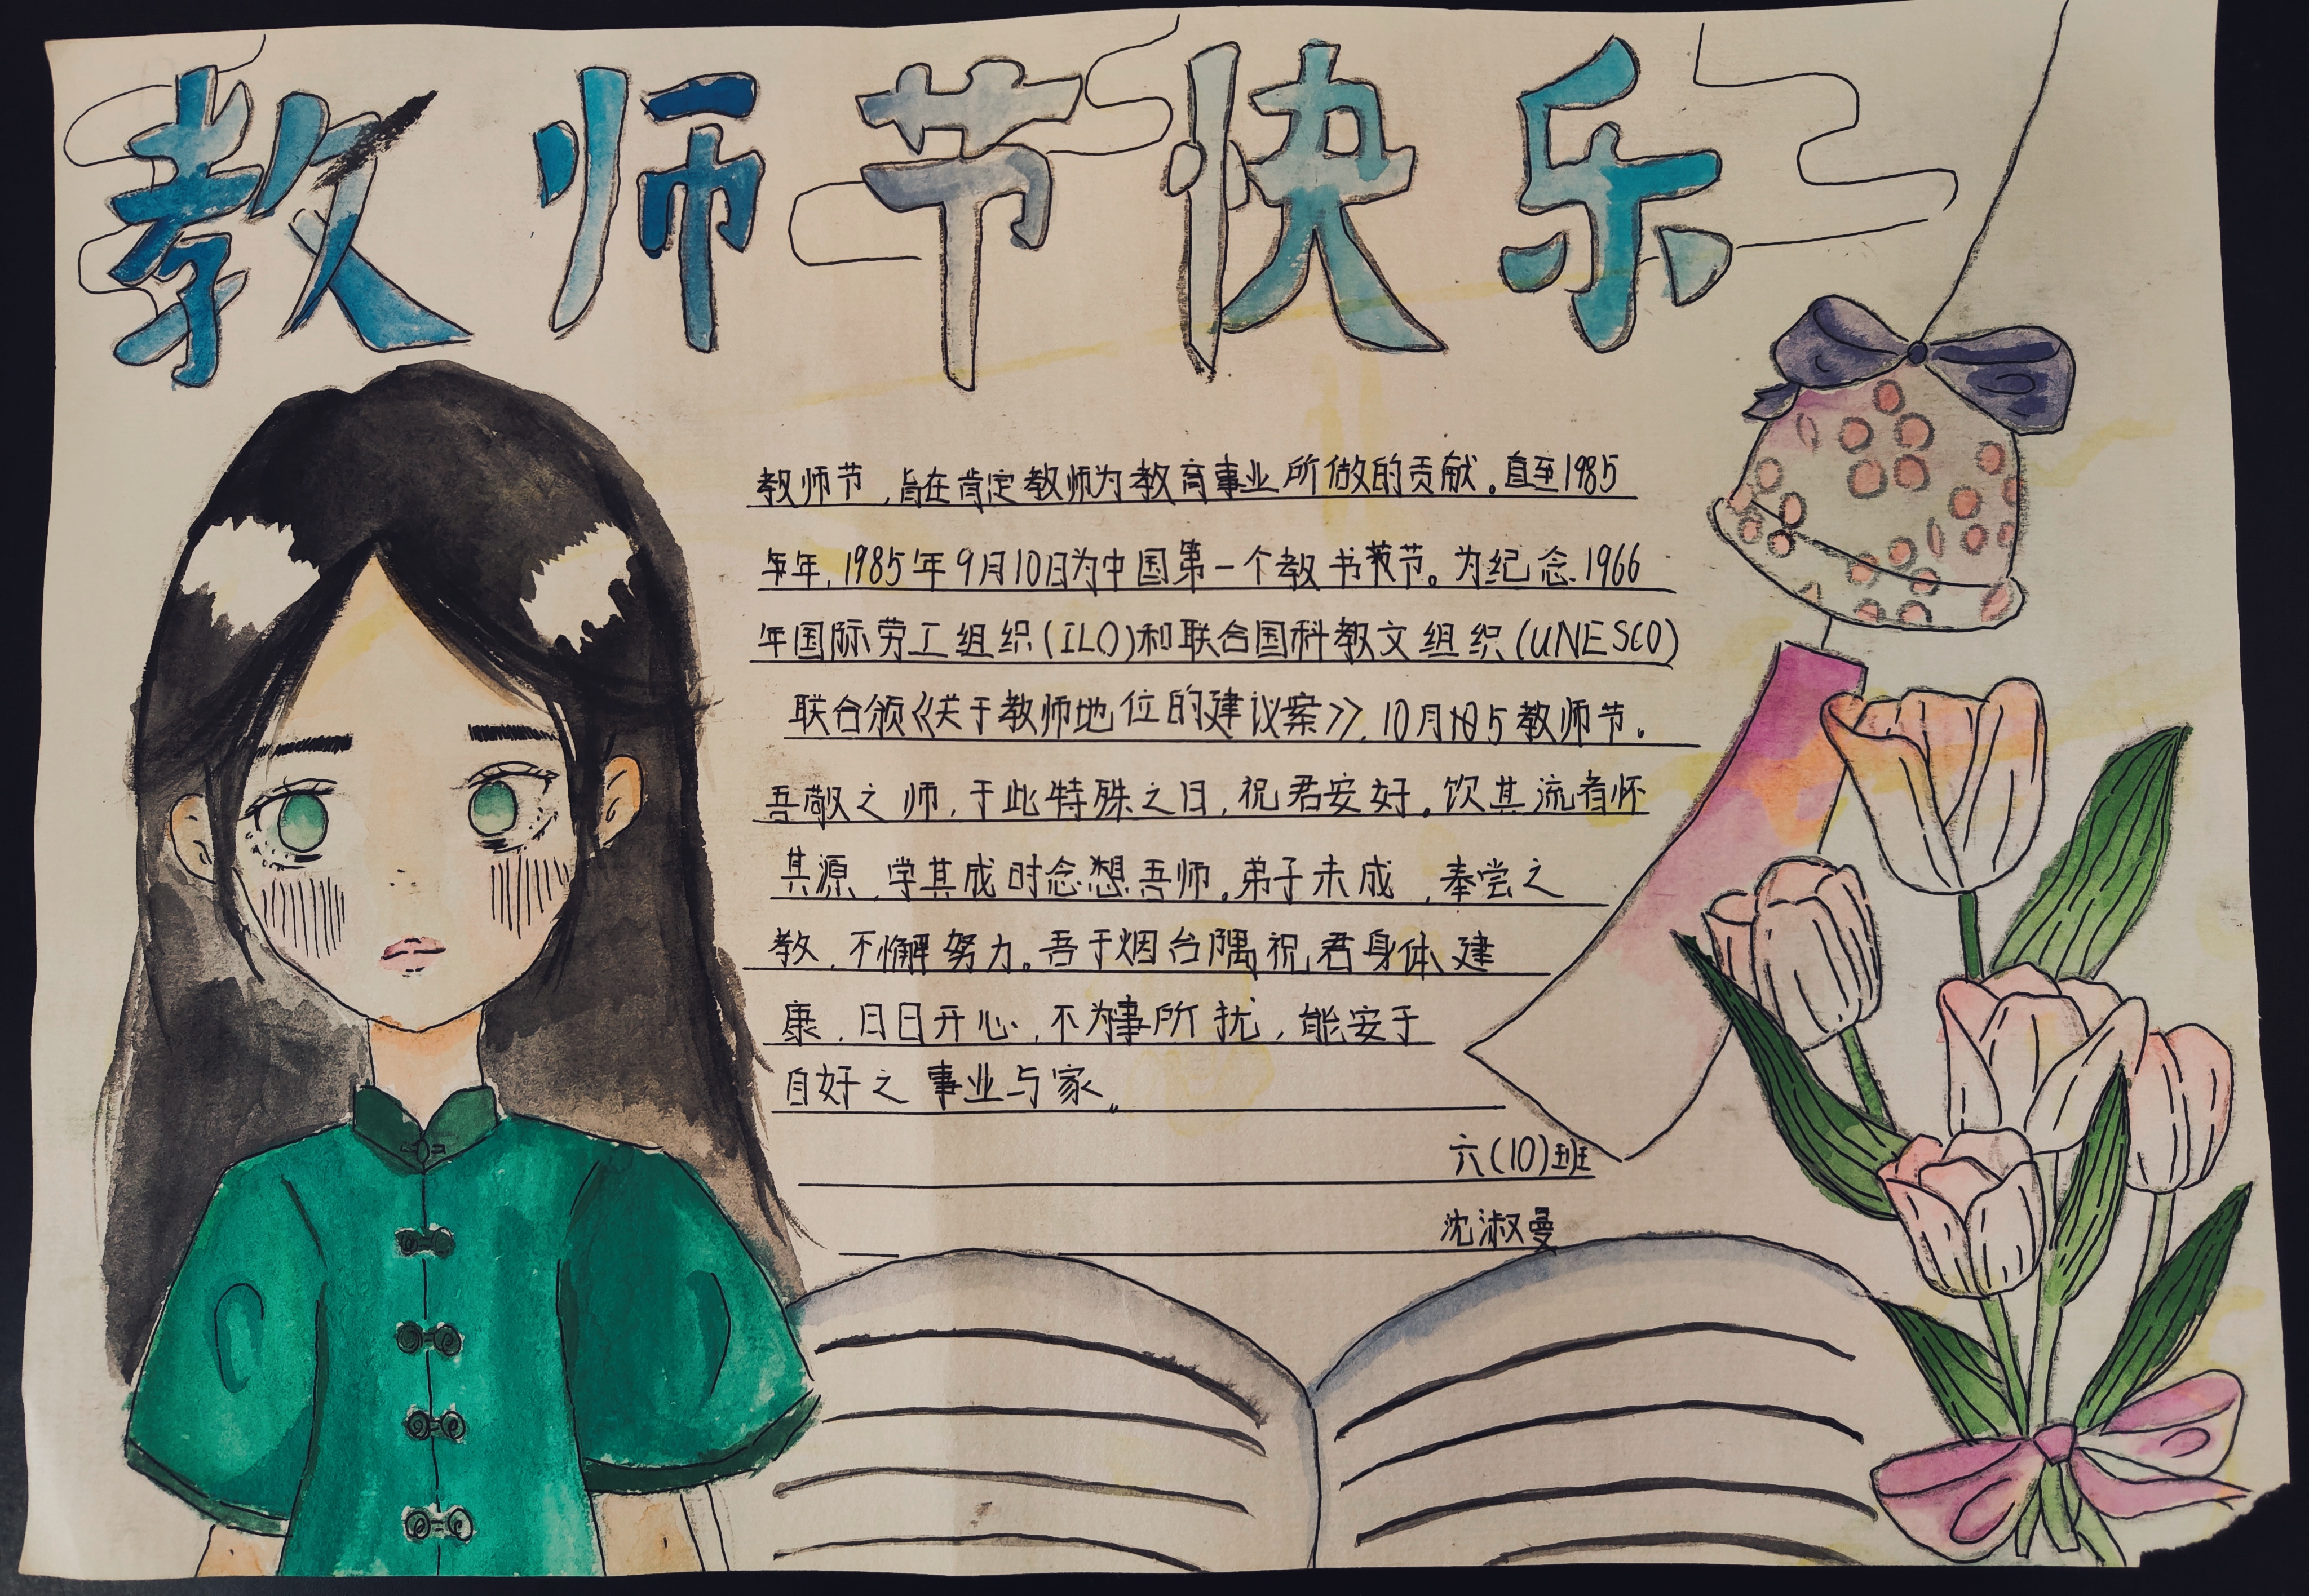 教师节快乐
教师节,旨在肯定教师为教育事业所做的贡献。直至1985
年,1985年9月10日为中国第一个教节。为纪念1966
年国际劳工组织(ILO)和联合国科教文组织(UNESCO)
联合颁《关于教师地位的建议案》,10月5教师节。
吾敬之师,于此特殊之日,祝君安好。饮其流者怀
其源,学其成时念想吾师。弟子未成,奉尝之
教,不懈努力。吾于烟台隅祝君身体建
康,日日开心,不为事所扰,能安于
自好之事业与家。
六(10)班
沈淑曼